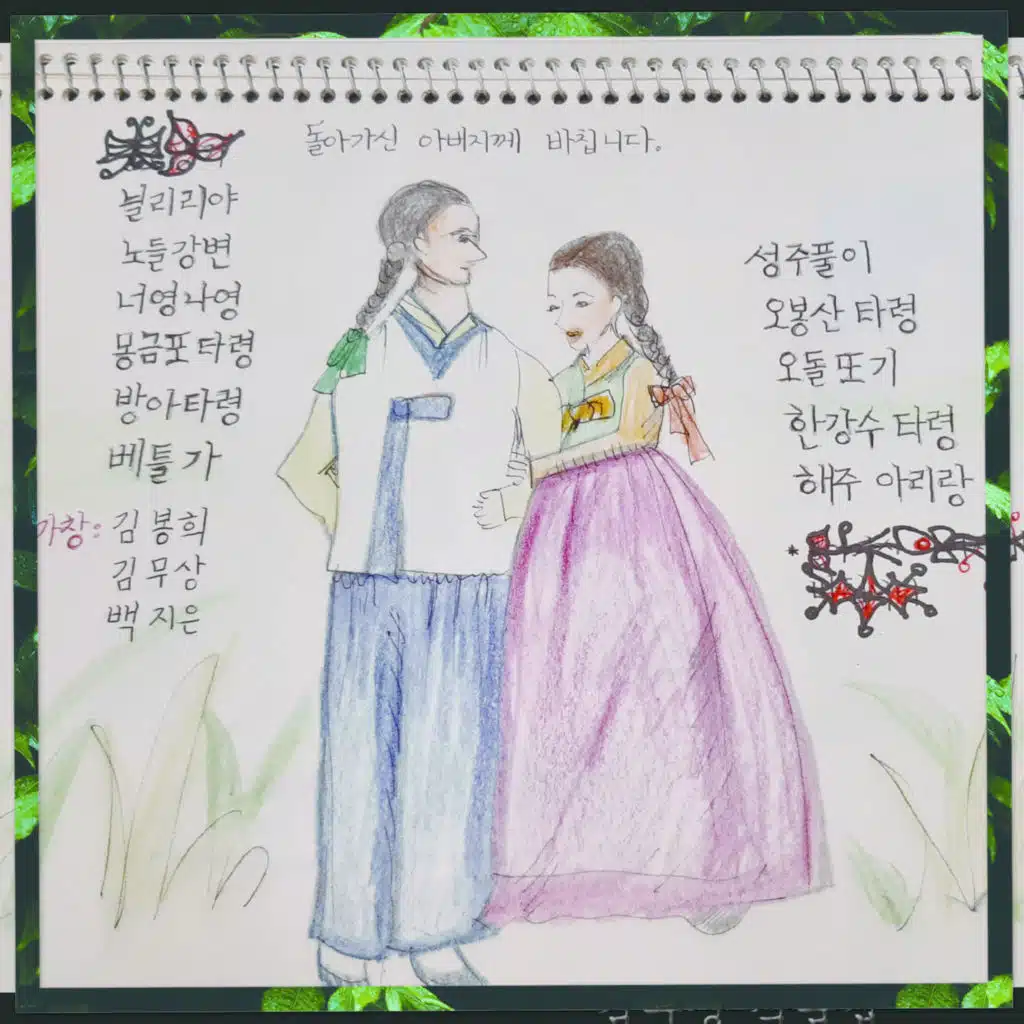 돌아가신 아버지께 바칩니다.
늴리리야
노들강변
너영나영
몽금포타령
방아타령
베틀가
가창: 김봉희
김무상
백지은
성주풀이
오봉산 타령
오돌또기
한강수타령
해주 아리랑